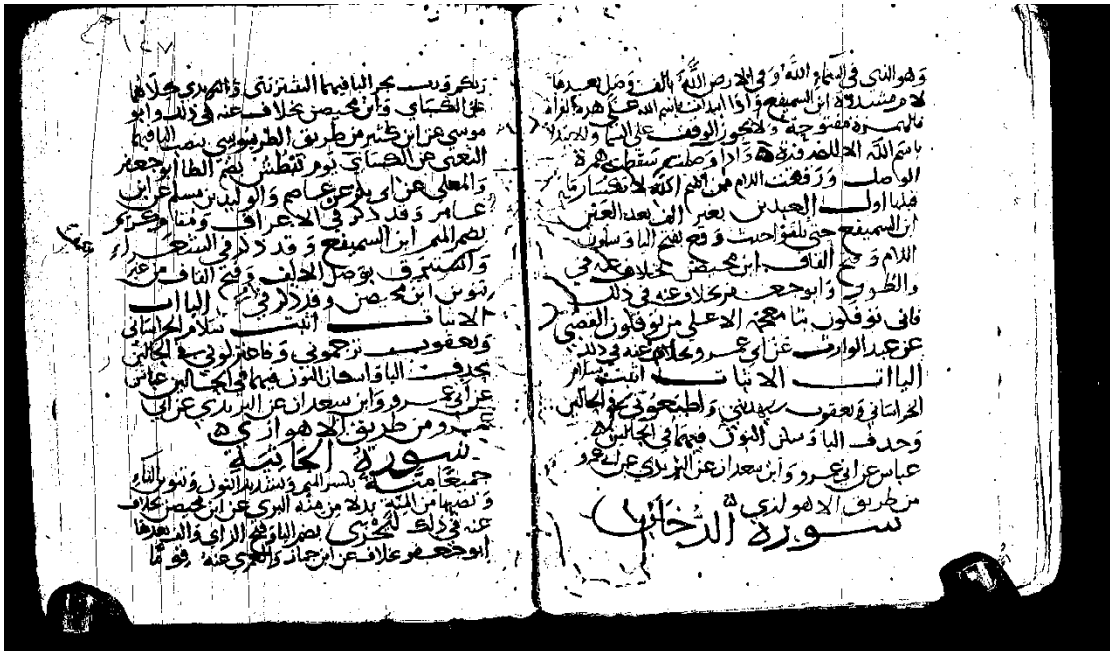 وهو الذي في السماء الله وفي الارض الله بالف وصل بعدها
لام مشددة ابن السميفع واذا ابتدات باسم الله على هذه القراة
فالهمزة مفتوحة ولا يجوز الوقف على السما وللابتدا
باسم الله الا للضرورة واذا وصلت سقطت همزة
الوصل ورققت اللام من اسم الله لانكسار ما
قبلها اول العبدين بغير الف بعد العين
ابن السميفع حتى يلقوا حيث وقع بفتح اليا وسكون
اللام وفتح القاف ابن محيصن بخلاف عنه في
والطور وابو جعفر بخلاف عنه في ذلك
فانى توفكون بتا معجمة الاعلى من فوقلون القصبي
عن عبد الوارث عن ابي عمرو بخلاف عنه في ذلك
الياات الاثبات اثبت سلام
الخراساني ويعقوب سيهديني واطيعوني في الحالين
وحذف اليا وسكن النون فيهما في الحالين
عباس عن ابي عمرو وابن سعدان عن اليزيدي عن ابي عمرو
من طريق الاهوازي
سورة الدخان
١٤٧
ربكم ورب بجر اليا فيهما الشنزرتي والنهدي كلاهما
عن الكسائي وابن محيصن بخلاف عنه في ذلك وابو
موسى عن ابن كثير من طريق الطرسوسي بنصب اليا فيهما
الثعلبي عن الكسائي يوم نبطش بضم الطا ابو جعفر
والمعلى عن ابي بكر عن عاصم والوليد بن مسلم عن ابن
عامر وقد ذكر في الاعراف ومقام كريم
بضم الميم ابن السميفع وقد ذكر في الشعراء
واستبرق بوصل الالف وفتح القاف من غير
تنوين ابن محيصن وقد ذكر في الياات
الاثبات اثبت سلام الخراساني
ويعقوب ترجموني وفاعتزلوني في الحالين
بحذف اليا واسكان النون فيهما في الحالين عباس
عن ابي عمرو وابن سعدان عن اليزيدي عن ابي
عمرو من طريق الاهوازي
سورة الجاثية
جميعا منة بكسر الميم وتشديد النون وتنوين التاء
ونصبها من المنة بدلا من منه البزي عن ابن محيصن بخلاف
عنه في ذلك ليجزى بضم اليا وفتح الزاي والف بعدها
ابو جعفر بخلاف عن ابن جماز والعمري عنه قوما